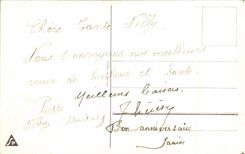 Chère Tante Nelly
Nous t'envoyons nos meilleurs
vœux de bonheur et santé.
Meilleurs baisers
Thierry
Bon anniversaire
Janine